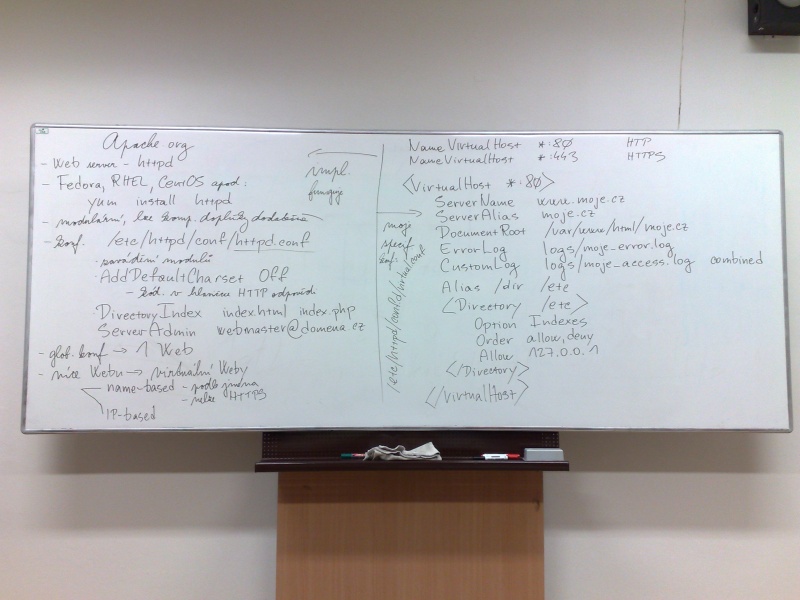 Apache org
- Web server - httpd
- Fedora, RHEL, CentOS apod:
yum install httpd
- modulární, lze komp. doplňky dodatečně
- konf. /etc/httpd/conf/httpd.conf
· zavádění modulů
· AddDefaultCharset Off
- kód. v hlavičce HTTP odpovědi
· DirectoryIndex index.html index.php
ServerAdmin webmaster@domena.cz
- glob. konf → 1 Web
- více Webů → virtuální Weby
name-based - podle jména
- nelze HTTPS
IP-based
impl.
funguje
moje
specif
konf.
/etc/httpd/conf.d/virtual.conf
NameVirtualHost *:80 HTTP
NameVirtualHost *:443 HTTPS
<VirtualHost *:80>
ServerName www.moje.cz
ServerAlias moje.cz
DocumentRoot /var/www/html/moje.cz
ErrorLog logs/moje_error.log
CustomLog logs/moje_access.log combined
Alias /dir /etc
<Directory /etc>
Option Indexes
Order allow,deny
Allow 127.0.0.1
</Directory>
</VirtualHost>